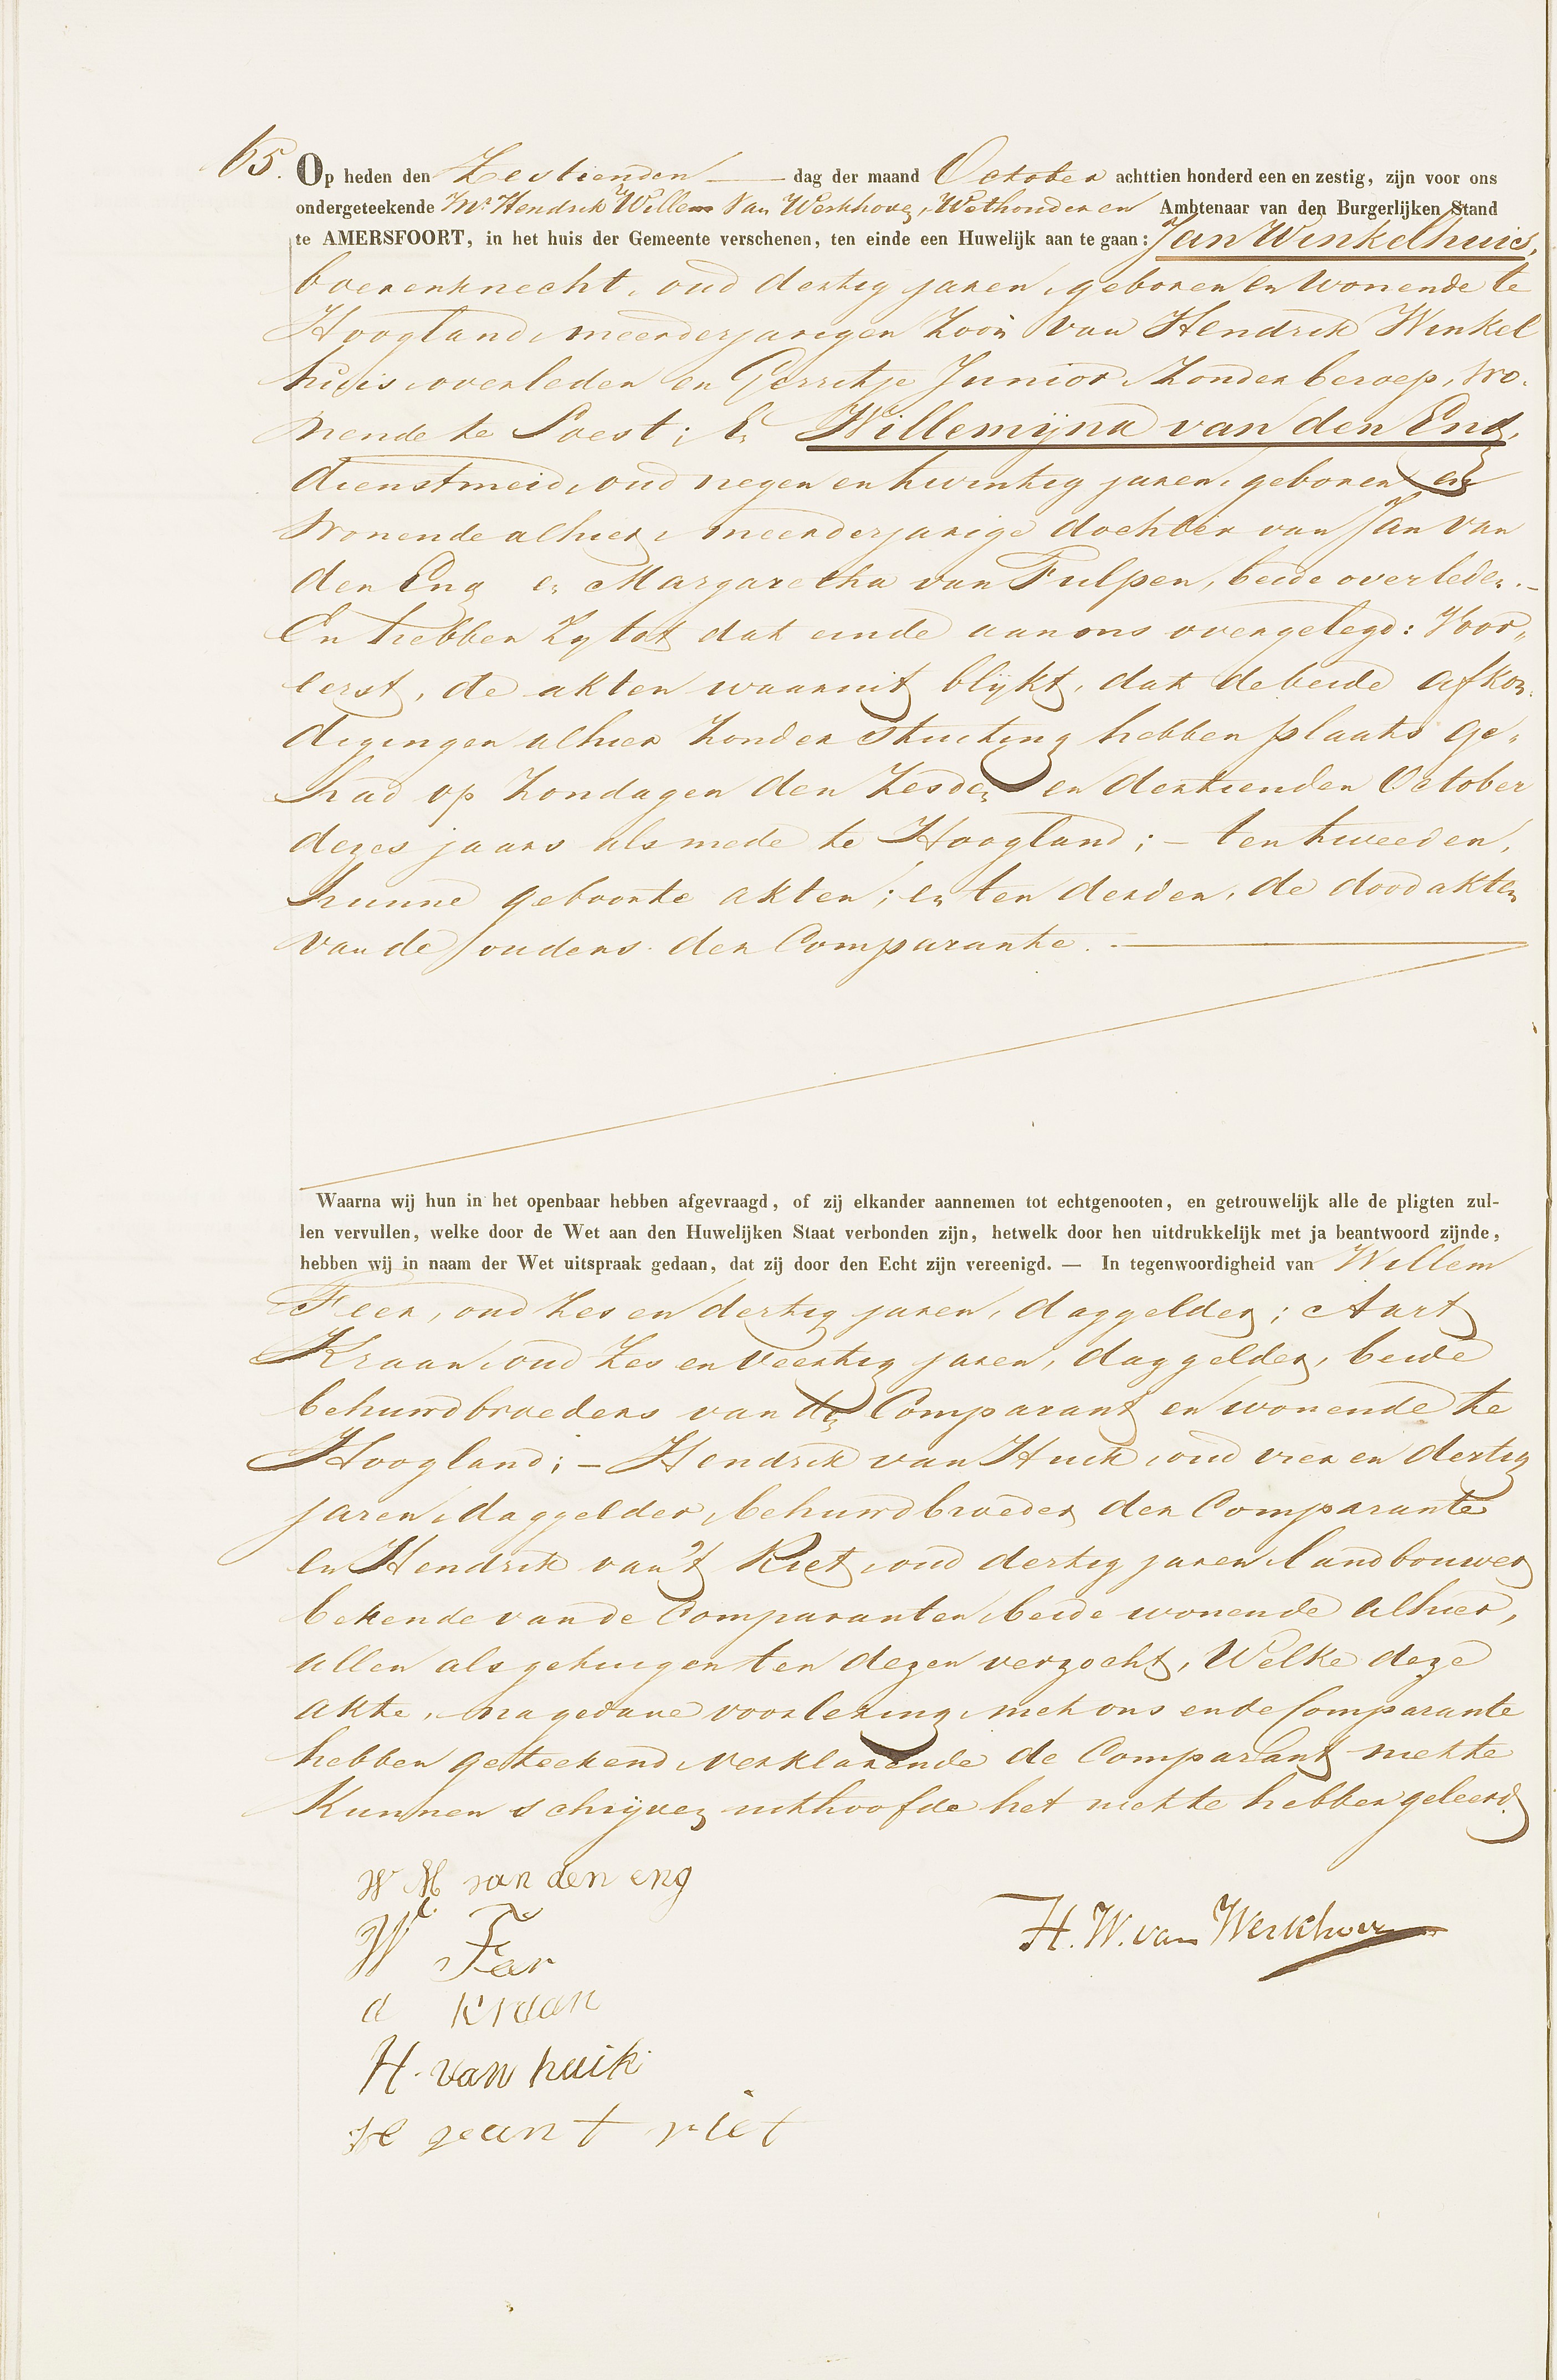 65. Op heden den Zestienden dag der maand October achttien honderd een en zestig, zijn voor ons
ondergeteekende Mr. Hendrik Willem Van Werkhoven, Wethouder en Ambtenaar van den Burgerlijken Stand
te AMERSFOORT, in het huis der Gemeente verschenen, ten einde een Huwelijk aan te gaan: Jan Winkelhuis,
boerenknecht, oud dertig jaren, geboren en wonende te
Hoogland, meerderjarigen Zoon van Hendrik Winkel
huis, overleden en Gerritje Junior, Zonder beroep, wo-
nende te Soest; En Willemijna van den Eng,
dienstmeid, oud negen en twintig jaren, geboren en
wonende alhier, meerderjarige dochter van Jan van
den Eng en Margaretha van Fulpen, beide overleden. –
En hebben Zij tot dat einde aan ons overgelegd: Voor„
eerst, de akten waaruit blijkt, dat de beide afkon„
digingen alhier Zonder Stuiting hebben plaats ge„
had op Zondagen den Zesden en dertienden October
dezes jaars alsmede te Hoogland; – ten tweeden,
hunne geboorte akten; en ten derden, de dood akten
van de ouders der Comparante. –
Waarna wij hun in het openbaar hebben afgevraagd, of zij elkander aannemen tot echtgenooten, en getrouwelijk alle de pligten zul-
len vervullen, welke door de Wet aan den Huwelijken Staat verbonden zijn, hetwelk door hen uitdrukkelijk met ja beantwoord zijnde,
hebben wij in naam der Wet uitspraak gedaan, dat zij door den Echt zijn vereenigd. — In tegenwoordigheid van Willem
Feer, oud Zes en dertig jaren, daggelder; Aart
Kraan, oud Zes en Veertig jaren, daggelder, beide
behuwdbroeders van den Comparant en wonende te
Hoogland; – Hendrik van Huik, oud vier en dertig
jaren, daggelder, behuwdbroeder der Comparante
en Hendrik van't Riet, oud dertig jaren, landbouwer
bekende van de Comparanten, beide wonende alhier,
allen als getuigen ten dezen verzocht, Welke deze
akte, na gedane voorlezing, met ons en de Comparante
hebben geteekend, verklarende de Comparant niet te
Kunnen schrijven uithoofde het niet te hebben geleerd.
W M van den eng
Wl. Feer
H. W. van Werkhoven
a kraan
H. van huik
H van t riet